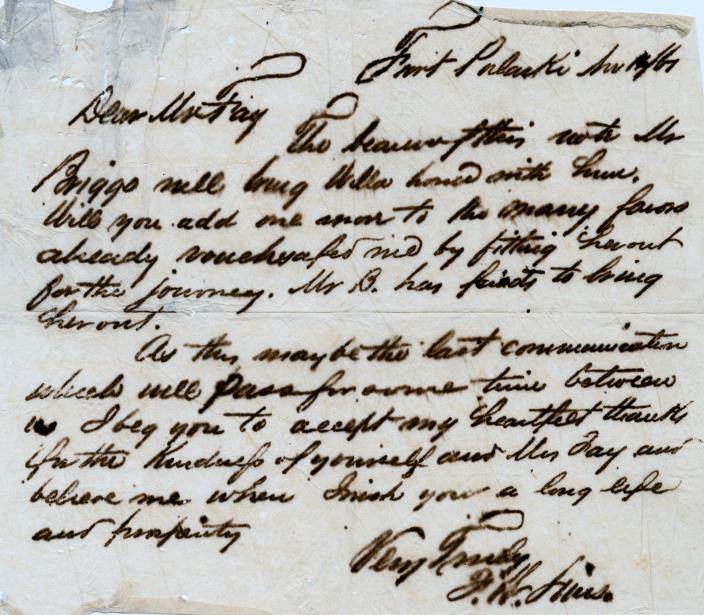 Fort Pulaski Nov 19/61
Dear Mr Fay
The bearer of this note Mr
Briggs will bring Willa home with him.
Will you add one more to the many favors
already vouchsafed me by fitting her out
for the journey. Mr B. has funds to bring
her out.
As this may be the last communication
which will pass for some time between
us I beg you to accept my heartfelt thanks
for the kindness of yourself and Mrs Fay and
believe me when I wish you a long life
and prosperity
Very Truly
F. W. Sims.